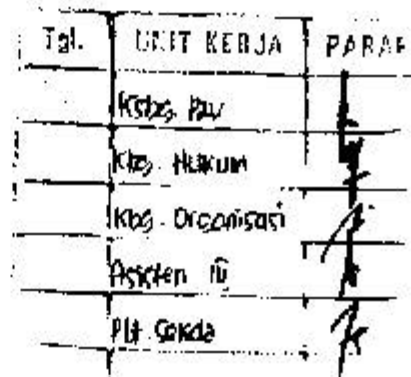 Tgl. UNIT KERJA PARAF
Kbg. Hukum
Kbg. Organisasi
Asisten IV
Plt Sekda